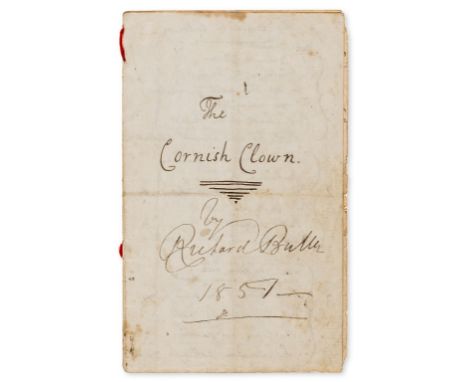 The
Cornish Clown.
by
Richard Buller
1851—